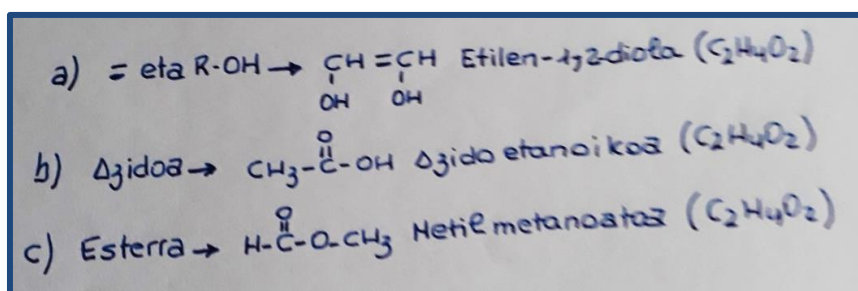 a) = eta R-OH → CH=CH Etilen-1,2-diola (C₂H₄O₂)
OH OH
O
b) Azidoa → CH₃-C-OH Azido etanoikoa (C₂H₄O₂)
O
c) Esterra → H-C-O-CH₃ Metil metanoatoa (C₂H₄O₂)